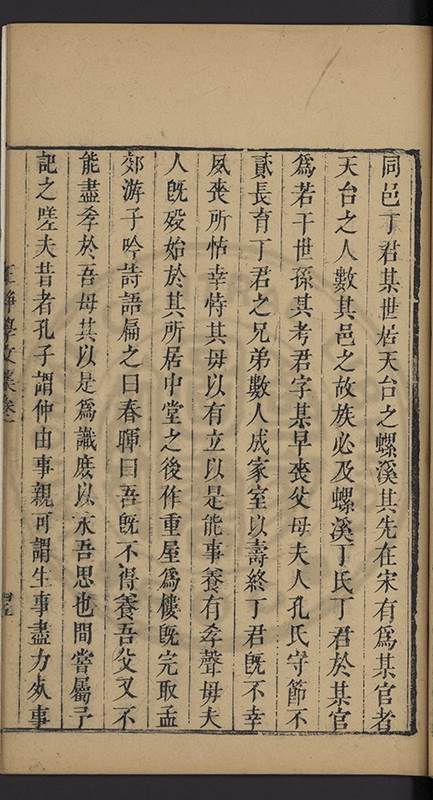 同邑丁君某世居天台之螺溪其先在宋有爲某官者
天台之人數其邑之故族必及螺溪丁氏丁君於某官
爲若干世孫其考君字某早喪父母夫人孔氏守節不
貳長育丁君之兄弟數人成家室以壽終丁君旣不幸
夙喪所怙幸恃其母以有立以是能事養有孝聲母夫
人旣歿始於其所居中堂之後作重屋爲樓旣完取孟
郊游子吟詩語扁之曰春暉曰吾旣不得養吾父又不
能盡孝於吾母其以是爲識庶以永吾思也間嘗屬予
記之嗟夫昔者孔子謂仲由事親可謂生事盡力死事
王靜學文集卷